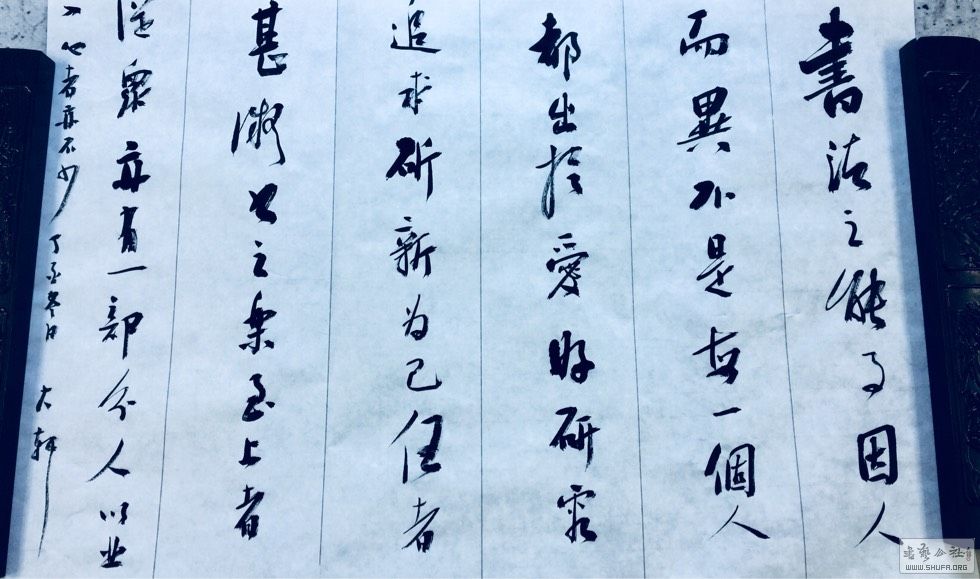 書法之能事因人
而異不是每一個人
都出於愛好研究
追求斫新為己任者
甚微以之樂至上者
從衆亦有一部分人以此
入心者亦不少 丁酉冬日 大軒
书艺公社
WWW.SHUFA.ORG